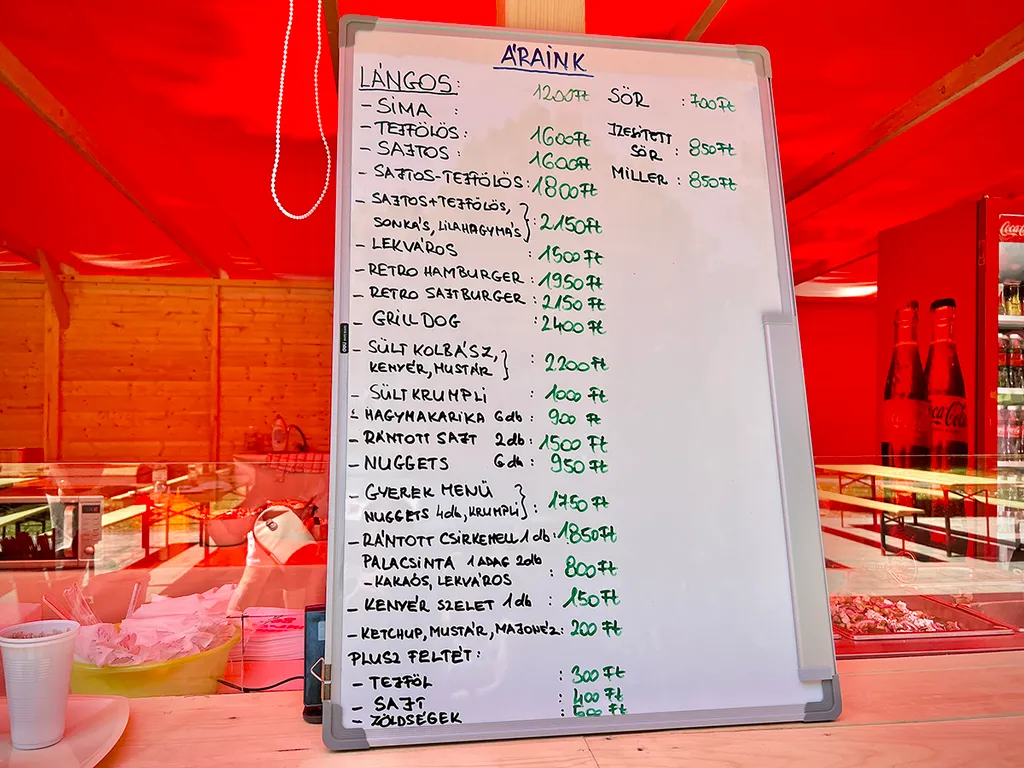 ÁRAINK
LÁNGOS:
- SIMA : 1200Ft
- TEJFÖLÖS: 1600Ft
- SAJTOS: 1600Ft
- SAJTOS-TEJFÖLÖS: 1800Ft
- SAJTOS+TEJFÖLÖS,
SONKÁS, LILAHAGYMÁS : 2150Ft
- LEKVÁROS : 1500Ft
- RETRO HAMBURGER : 1950Ft
- RETRO SAJTBURGER : 2150Ft
- GRILL DOG : 2400Ft
- SÜLT KOLBÁSZ,
KENYÉR, MUSTÁR : 2200Ft
- SÜLT KRUMPLI : 1000Ft
- HAGYMAKARIKA 6db : 900 Ft
- RÁNTOTT SAJT 2db : 1500 Ft
- NUGGETS 6db : 950Ft
- GYEREK MENÜ
NUGGETS 4db, KRUMPLI : 1750 Ft
- RÁNTOTT CSIRKEMELL 1db : 1850Ft
PALACSINTA 1 ADAG 2db
- KAKAÓS, LEKVÁROS : 800Ft
- KENYÉR SZELET 1db : 150Ft
- KETCHUP, MUSTÁR, MAJONÉZ: 200 Ft
PLUSZ FELTÉT:
- TEJFÖL : 300Ft
- SAJT : 400 Ft
- ZÖLDSÉGEK : 500 Ft
SÖR : 700Ft
IZESÍTETT
SÖR : 850Ft
MILLER : 850Ft
Coca-Cola
Coca-Cola